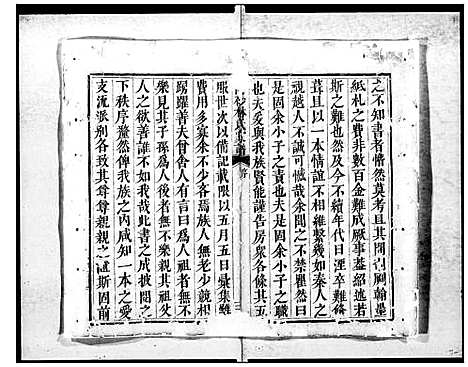 之不知書者懵然莫考且其間刋刷翰墨
紙札之費非數百金難成厥事蓋紹述若
斯之難也然及今不續年代日湮卒難修
葺且以一本情誼不相維繫幾如秦人之
視越人不誠可慨哉余聞之不禁瞿然曰
是固余小子之責也夫是固余小子之職
也夫爰與我族賢能謹告房眾各條其五
服世次以備記載限以五月五日彙集雖
費用多寡余不少吝焉族人無老少競相
踴躍善夫曾舍人有言曰為人祖者無不
樂見其子孫為人後者無不樂親其祖父
人之欲善誰不如我哉此書之成披閱之
下秩序釐然俾我族之內咸知一本之愛
支流派別各致其尊尊親親之誼斯固前